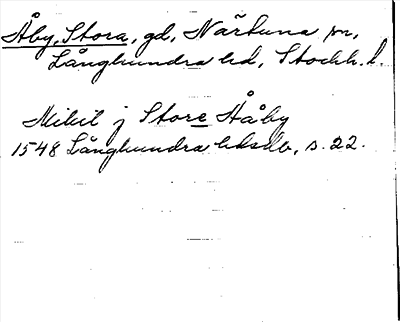 Åby, Stora, gd, Närtuna sn,
Långhundra hd, Stockh. l.
Mikil j Store Håby
1548 Långhundra hdsdb, s. 22.